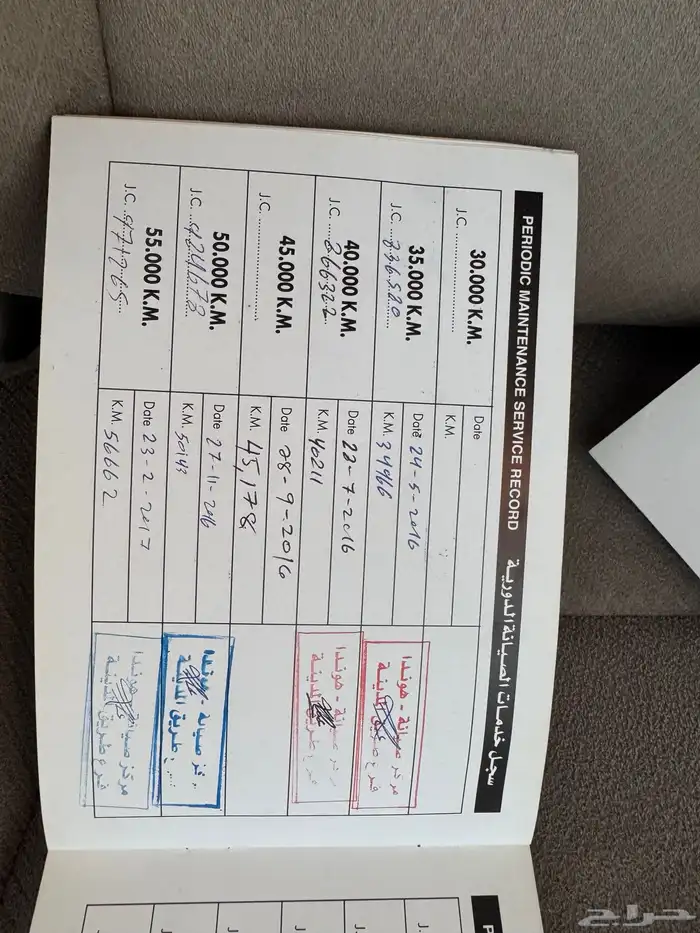 PERIODIC MAINTENANCE SERVICE RECORD سجل خدمات الصيانة الدورية
30.000 K.M.
J.C. ....................
Date
K.M.
35.000 K.M.
J.C. 336580
Date 24-5-2016
K.M. 34966
مركز صيانة - هوندا
فرع طريق المدينة
40.000 K.M.
J.C. 366322
Date 28-7-2016
K.M. 40211
مركز صيانة - هوندا
فرع طريق المدينة
45.000 K.M.
J.C. ....................
Date 28-9-2016
K.M. 45,178
50.000 K.M.
J.C. 424673
Date 27-11-2016
K.M. 50143
مركز صيانة - هوندا
فرع طريق المدينة
55.000 K.M.
J.C. 471265
Date 23-2-2017
K.M. 56662
مركز صيانة هوندا
فرع طريق المدينة
P
J.
J.
J.
J.
J.
حراج